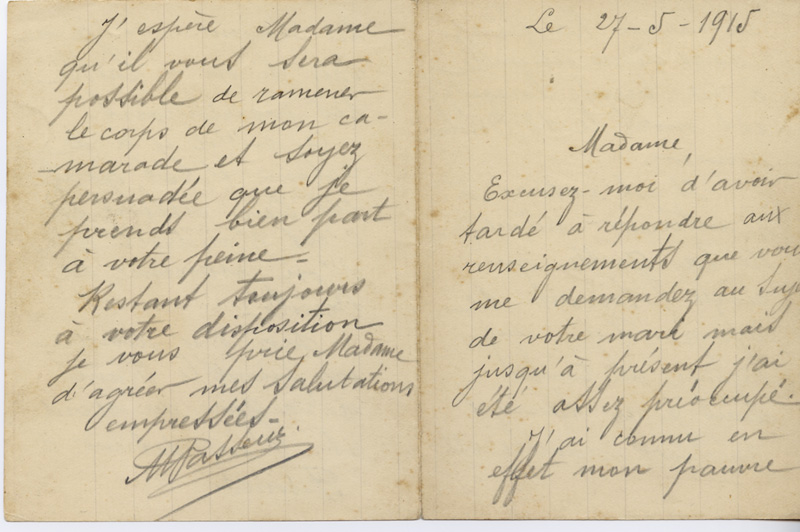 Le 27-5-1915
Madame,
Excusez-moi d'avoir
tardé à répondre aux
renseignements que vou
me demandez au suje
de votre mari mais
jusqu'à présent j'ai
été assez préoccupé.
J'ai connu en
effet mon pauvre
J'espère Madame
qu'il vous sera
possible de ramener
le corps de mon ca-
marade et soyez
persuadée que je
prends bien part
à votre peine-
Restant toujours
à votre disposition
je vous prie Madame
d'agréer mes salutations
empressées-